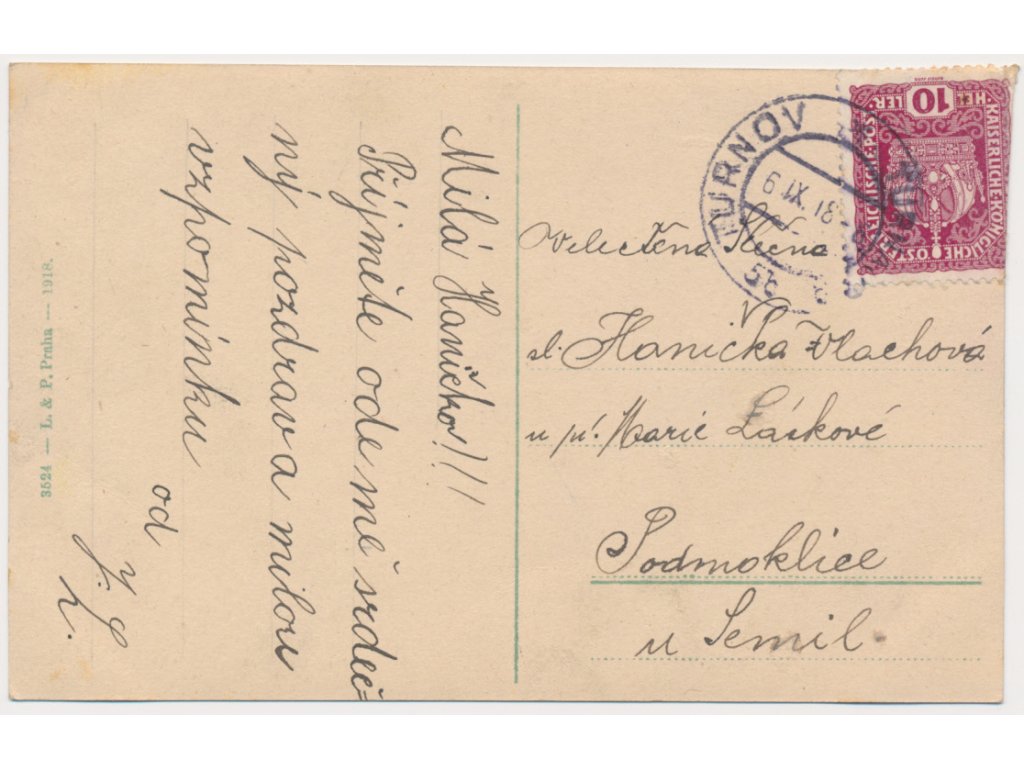 Milá Haničko!!!
Příjměte ode mě srdeč-
ný pozdrav a milou
vzpomínku
od
3524 — L. & P. Praha — 1918.
TURNOV
6 IX. 18
5b
10
HEL
LER
KAISERLICHE KÖNIGLICHE ÖSTERREICHISCHE POST
Velectěná Slečna
sl. Hanička Vlachová
u pí. Marie Láskové
Podmoklice
u Semil.